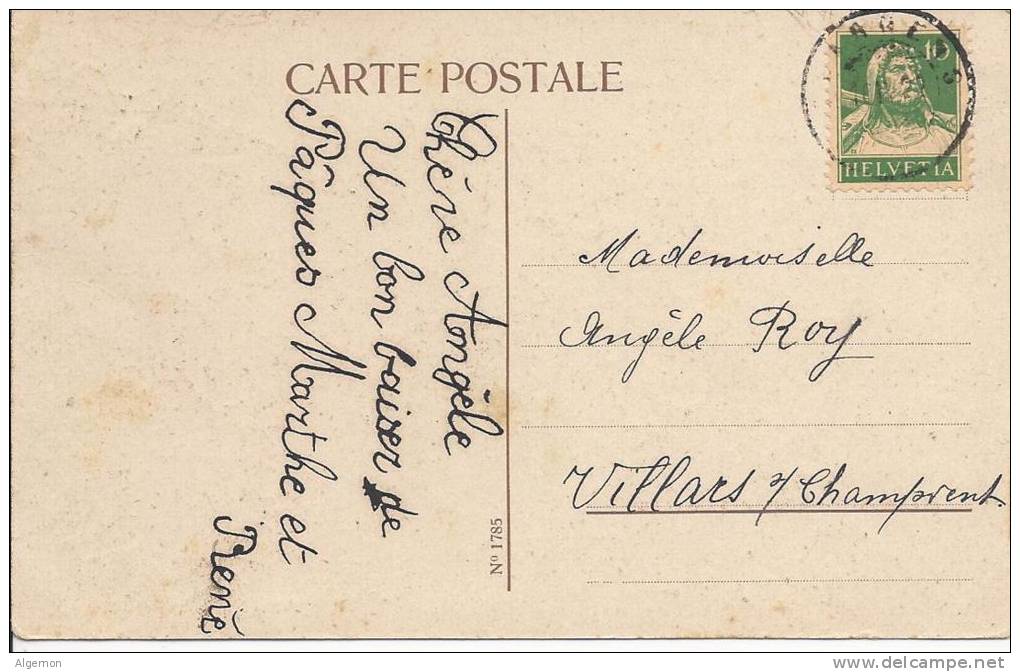 CARTE POSTALE
Chère Angèle
Un bon baiser de
Pâques Marthe et
René
Nº 1785
10
HELVETIA
Mademoiselle
Angèle Roy
Villars s/ Champvent
Algemon
delcampe.net